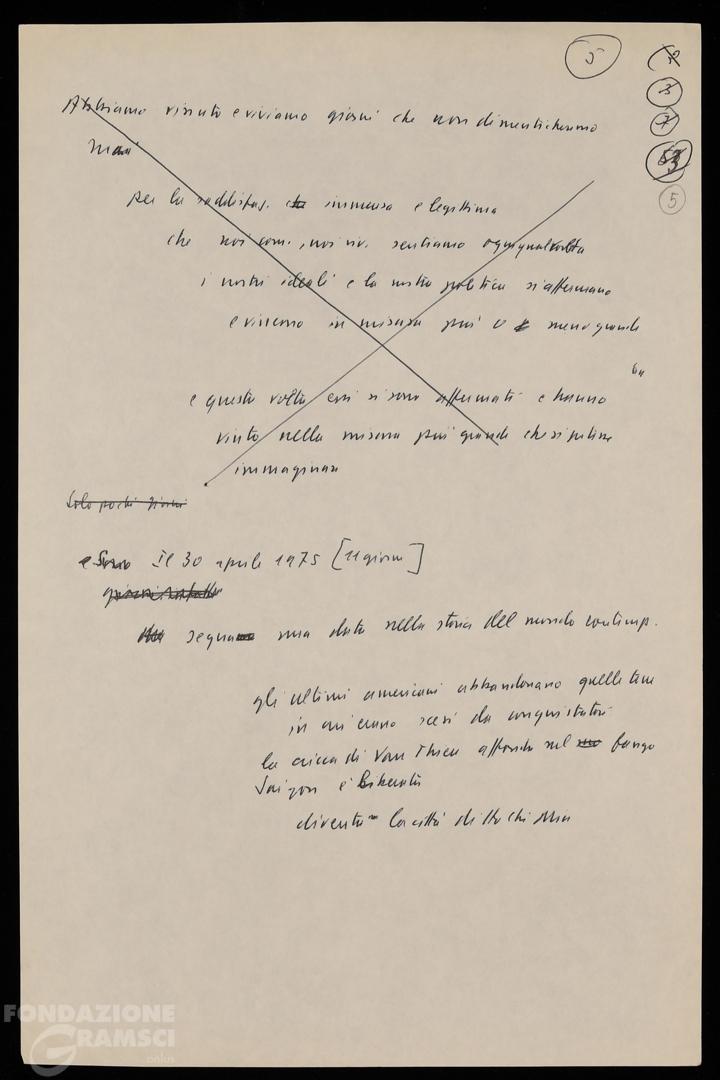 5
12
3
7
53
5
Abbiamo vissuto e viviamo giorni che non dimenticheremo
mai
per la soddisfaz. immensa e legittima
che noi com., noi riv. sentiamo ogniqualvolta
i nostri ideali e la nostra politica si affermano
e vincono in misura più o meno grande
e questa volta essi si sono affermati e hanno
vinto nella misura più grande che si potesse
immaginare
Solo pochi giorni
Il 30 aprile 1975 [11 giorni]
segna una data nella storia del mondo contemp.
gli ultimi americani abbandonano quelle terre
in cui erano scesi da conquistatori
la cricca di Van Thieu affonda nel fango
Saigon è liberata
diventa la città di Ho Chi Min
FONDAZIONE
GRAMSCI
onlus